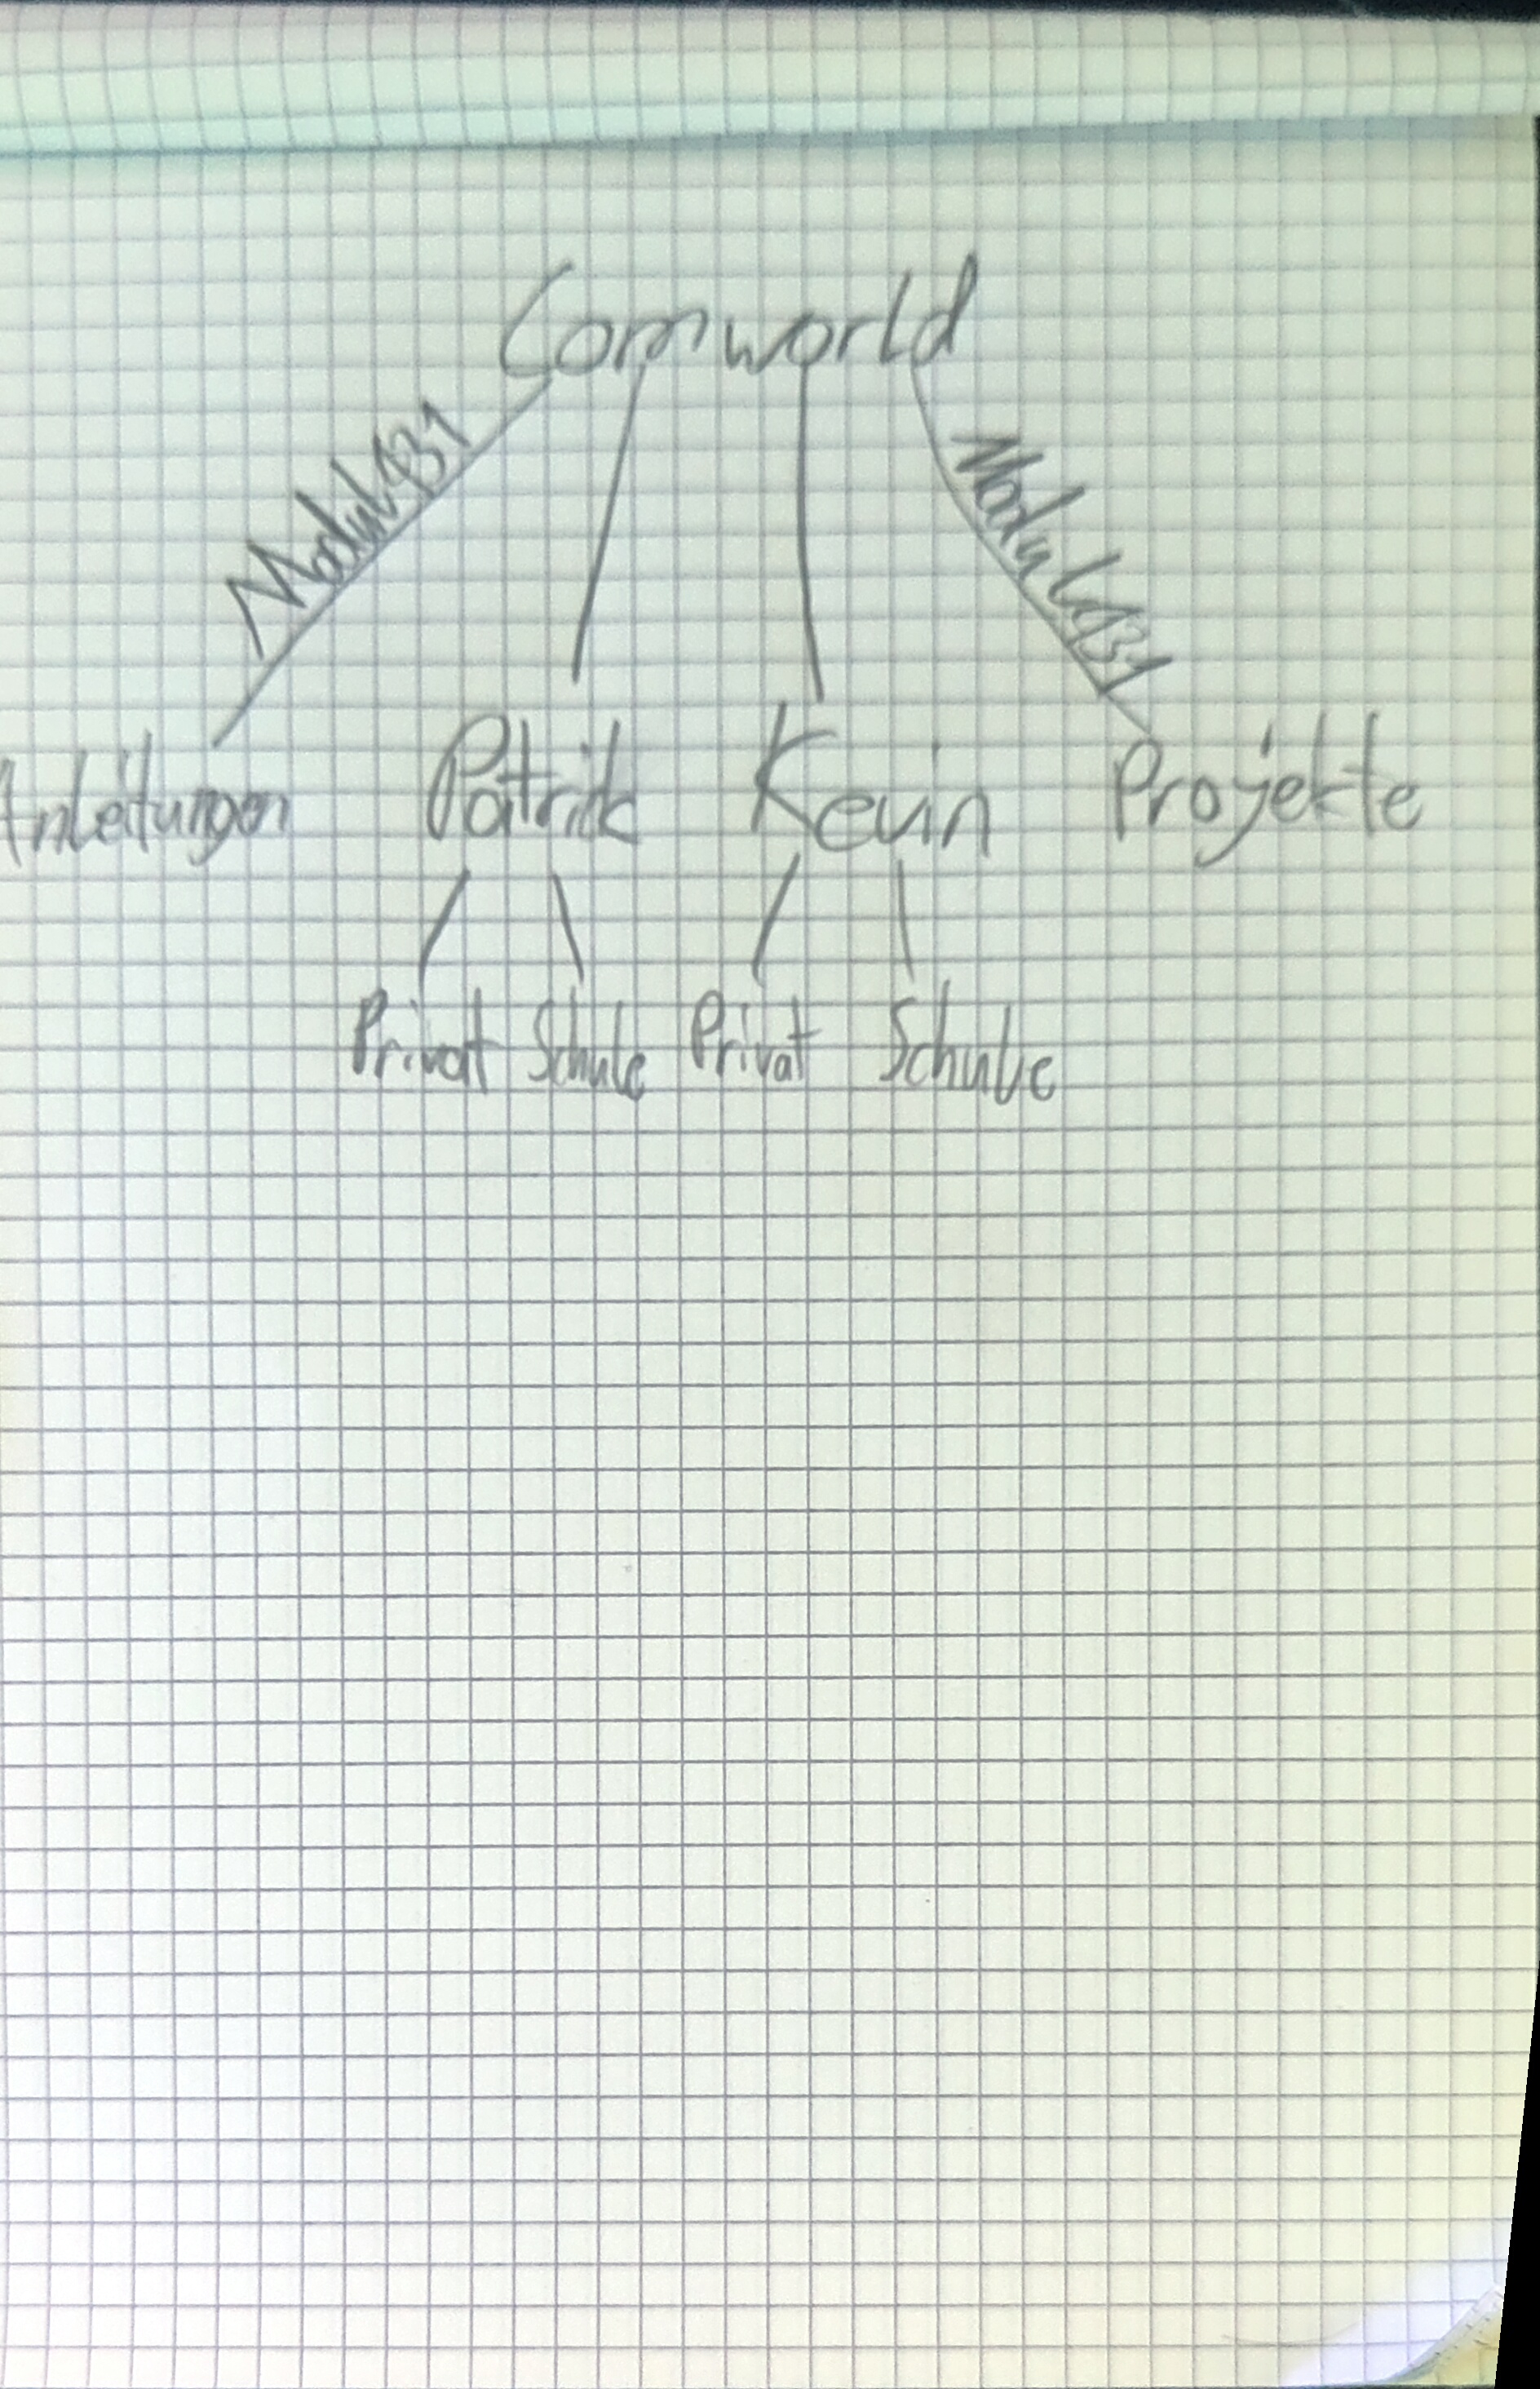 Comworld
Modul431
Modul431
Anleitungen Patrik Kevin Projekte
Privat Schule Privat Schule